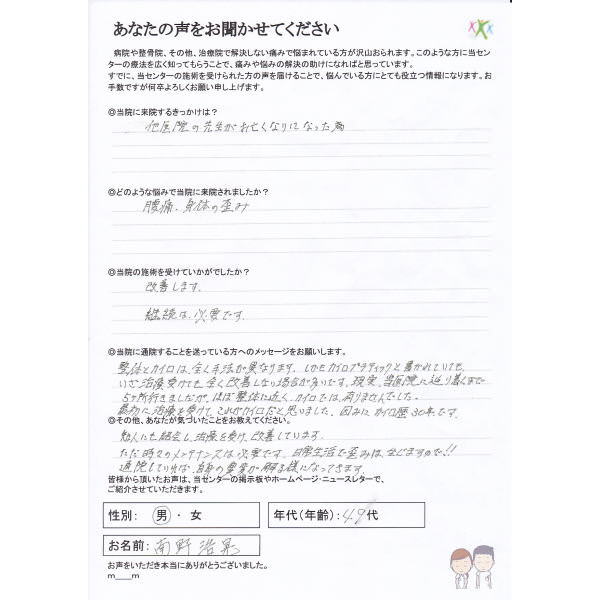 あなたの声をお聞かせてください
病院や整骨院、その他、治療院で解決しない痛みで悩まれている方が沢山おられます。このような方に当セン
ターの療法を広く知ってもらうことで、痛みや悩みの解決の助けになればと思っています。
すでに、当センターの施術を受けられた方の声を届けることで、悩んでいる方にとても役立つ情報になります。お
手数ですが何卒よろしくお願い申し上げます。
◎当院に来院するきっかけは?
他医院の先生がお亡くなりになった為
◎どのような悩みで当院に来院されましたか?
腰痛、身体の歪み
◎当院の施術を受けていかがでしたか?
改善します。
継続は必要です。
◎当院に通院することを迷っている方へのメッセージをお願いします。
整体とカイロは全く手法が異なります。しかもカイロプラティックと書かれていても、
いざ治療受けても全く改善しない場合が多いです。現実、当医院に辿り着くまで
5ヶ所行きましたが、ほぼ整体に近く、カイロでは有りませんでした。
最初に治療を受けて、これがカイロだと思いました。因みにカイロ歴30年です。
◎その他、あなたが気づいたことをお教えください。
知人にも紹介し、治療を受け、改善しています。
ただ時々のメンテナンスは必要です。日常生活で歪みは生じますので!!
通院していれば、自身の異常が解る様になってきます。
皆様から頂いたお声は、当センターの掲示板やホームページ・ニュースレターで、
ご紹介させていただきます。
性別: 男 ・ 女
年代(年齢):49代
お名前: 南野浩
お声をいただき本当にありがとうございました。
m__m